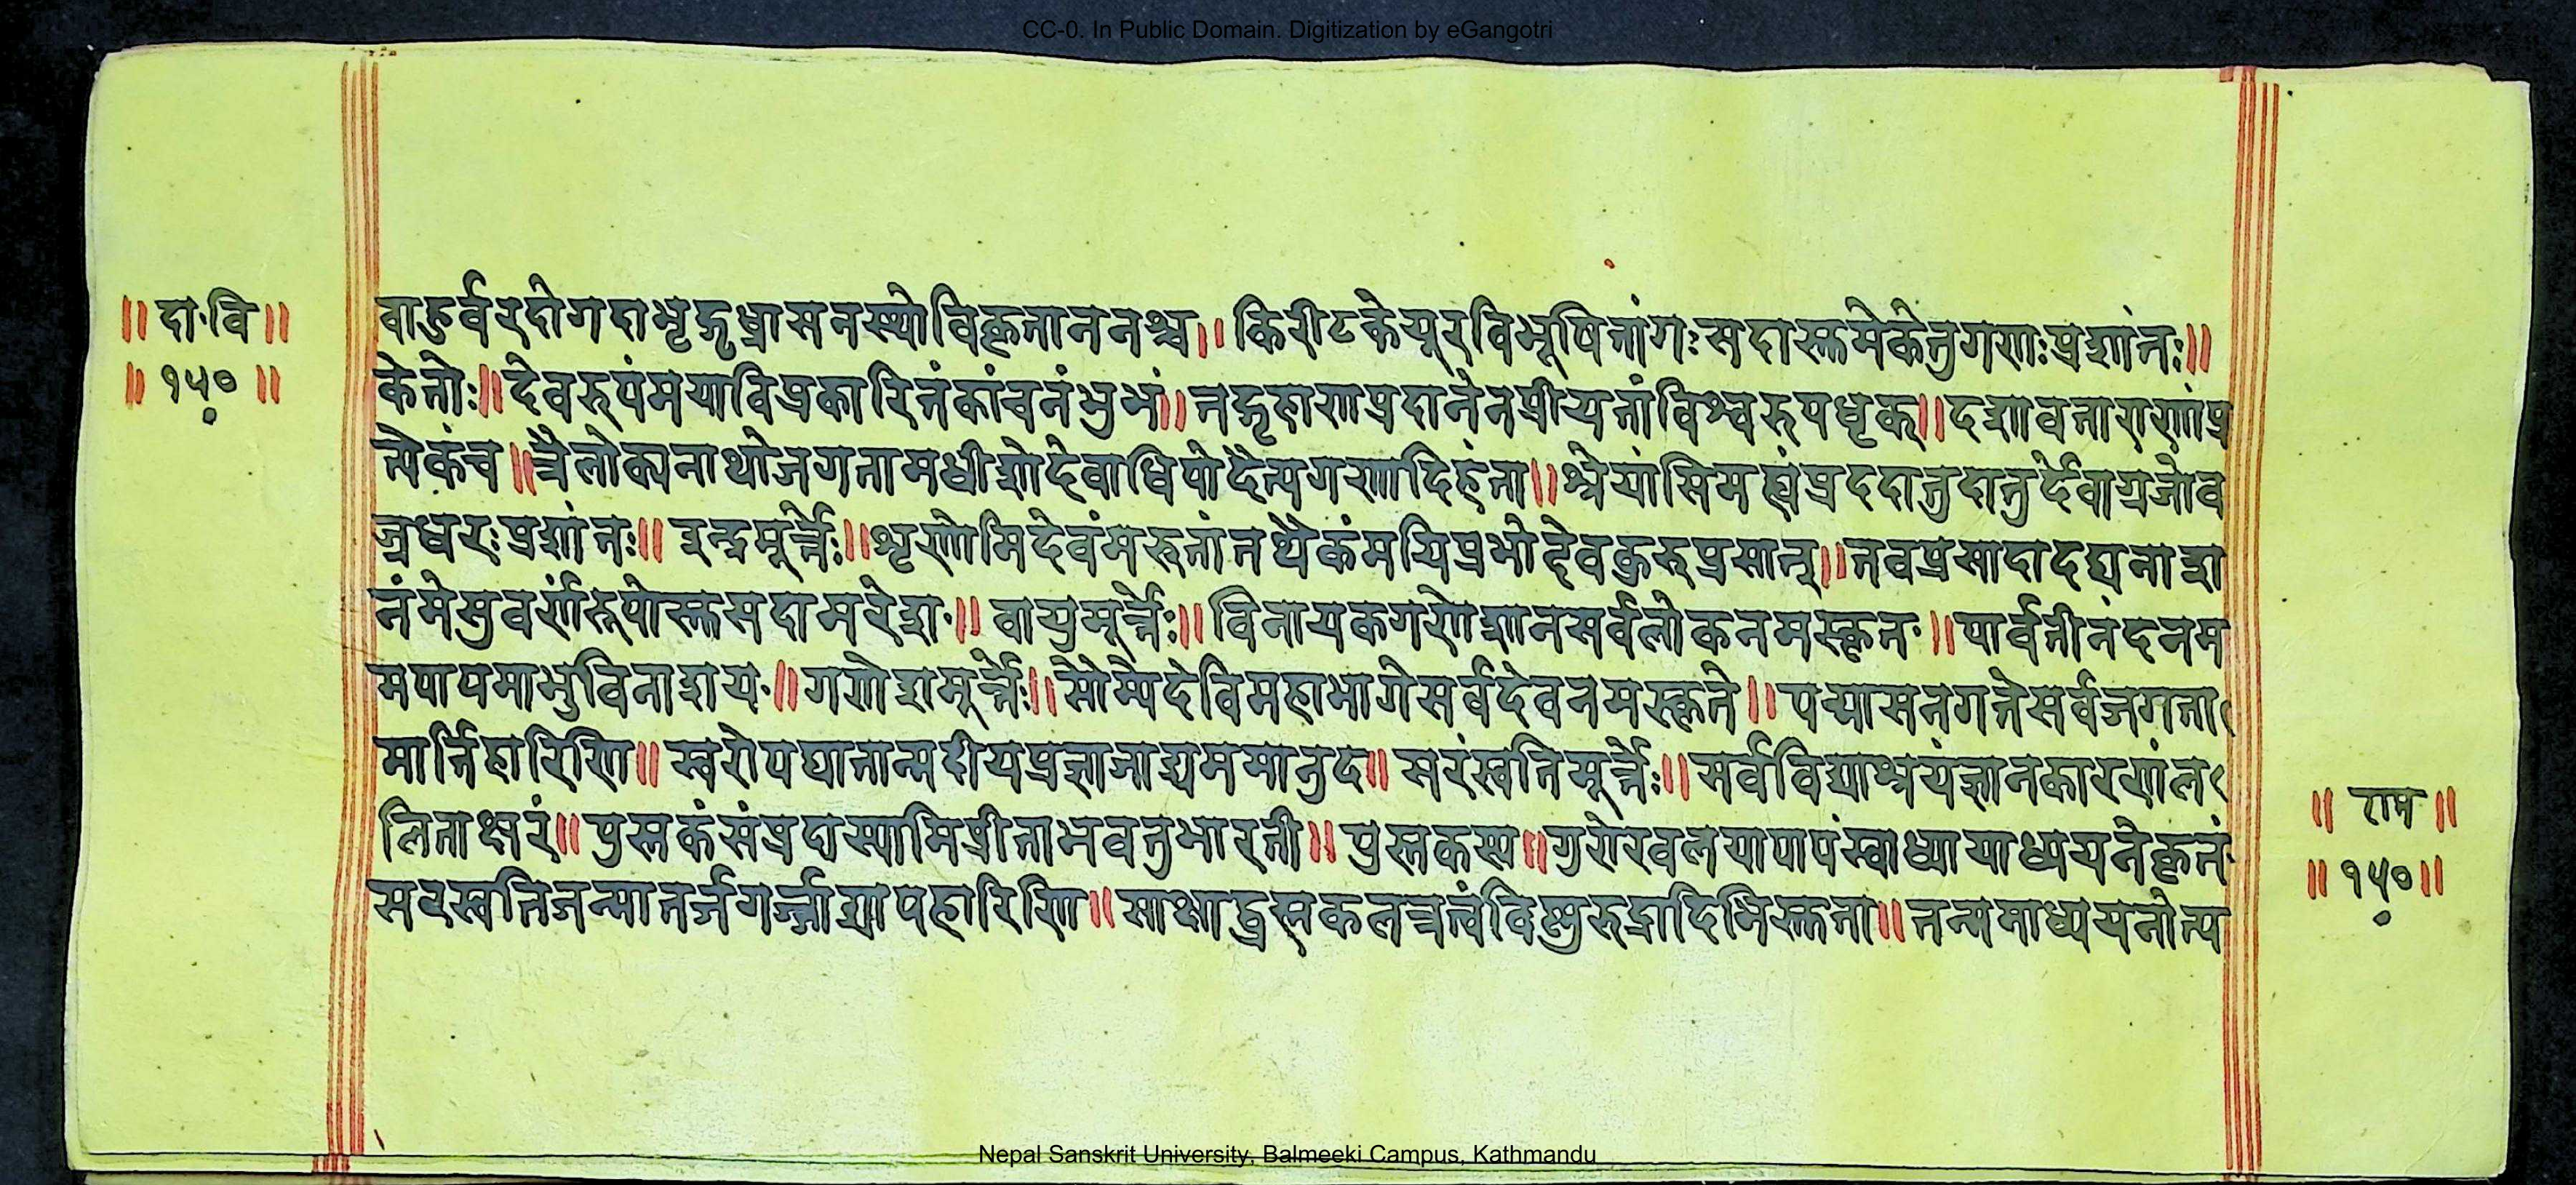 CC-0. In Public Domain. Digitization by eGangotri
॥ दा॰वि ॥
॥ १५० ॥
वाहुर्वरदोगदाभृद्गृध्रासनस्थोविकृताननश्च॥ किरीटकेयूरविभूषितांगःसदास्तुमेकेतुगणःप्रशांतः॥
केतोः॥ देवरुपंमयाविप्रकारितंकांचनंशुभं॥ तद्गृहाणप्रदानेनप्रीयतांविश्वरुपधृक्॥ दशावताराणांप्र
त्येकंच॥ त्रैलोक्यनाथोजगतामधीशोदेवाधिपोदैत्यगणादिहंता॥ श्रेयांसिमह्यंप्रददातुदातुर्देवाग्रजोव
ज्रधरःप्रशांतः॥ इन्द्रमूर्त्तेः॥ शृणोमिदेवंमरुतांतथैकंमयिप्रभोदेवकुरुप्रसान्॥ तवप्रसादादद्यनाशा
नंमेसुवर्णरुपोस्तुसदामरेशः॥ वायुमूर्त्तेः॥ विनायकगणेशानसर्वलोकनमस्कृत॥ पार्वतीनंदनम
मपापमाशुविनाशय॥ गणेशमूर्त्तेः॥ सोम्यैदेविमहाभागेसर्वदेवनमस्कृते॥ पद्मासनगतेसर्वजगता
मार्त्तिहारिणि॥ स्वरोपघातान्मदीयप्रज्ञाजाड्यममानुद॥ सरस्वतिमूर्त्तेः॥ सर्वविद्याश्रयंज्ञानकारणंल
लिताक्षरं॥ पुस्तकंसंप्रदास्यामिप्रीताभवतुभारती॥ पुस्तकस्य॥ गुरोरवलयापापंस्वाध्यायाध्ययनेकृतं
सरस्वतिजन्मानर्ज॥ साक्षाद्ब्रह्मकलत्रत्वंविष्णुरुद्रादिभिस्तुता॥ तन्ममाध्ययनोत्प
॥ राम ॥
॥ १५० ॥
Nepal Sanskrit University, Balmeeki Campus, Kathmandu